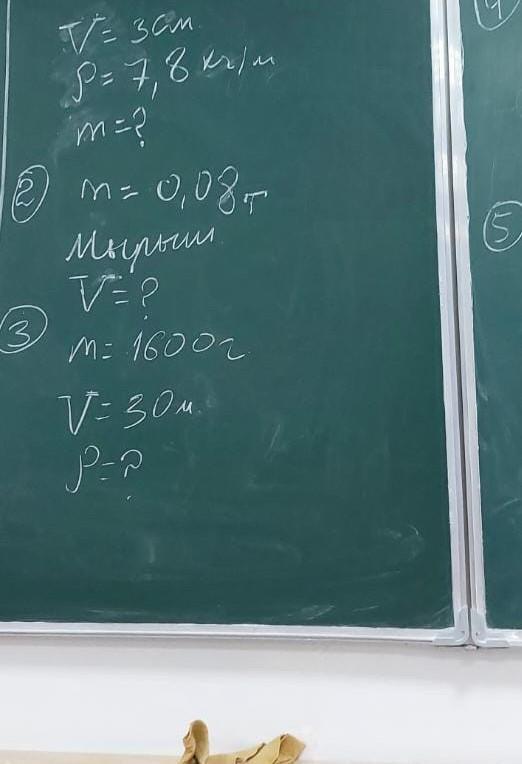 V = 3 см
ρ = 7,8 кг/м
m = ?
② m = 0,08 т
Мырыш
V = ?
③ m = 1600 г
V = 30 м
ρ = ?
⑤